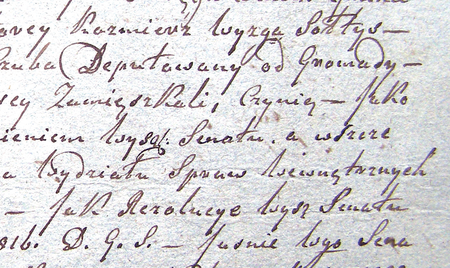 Kazmierz Wyzga Sołtys –
Deputowany od Gromady –
Zamięszkali, Czynię – Jako
ieniem Wysz: Senatu. a w
a Wydziału Spraw Wewnętrznych
– Jak Rezolucye Wysz Senatu
816. D. G. S. – Jaśnie Wgo Sena